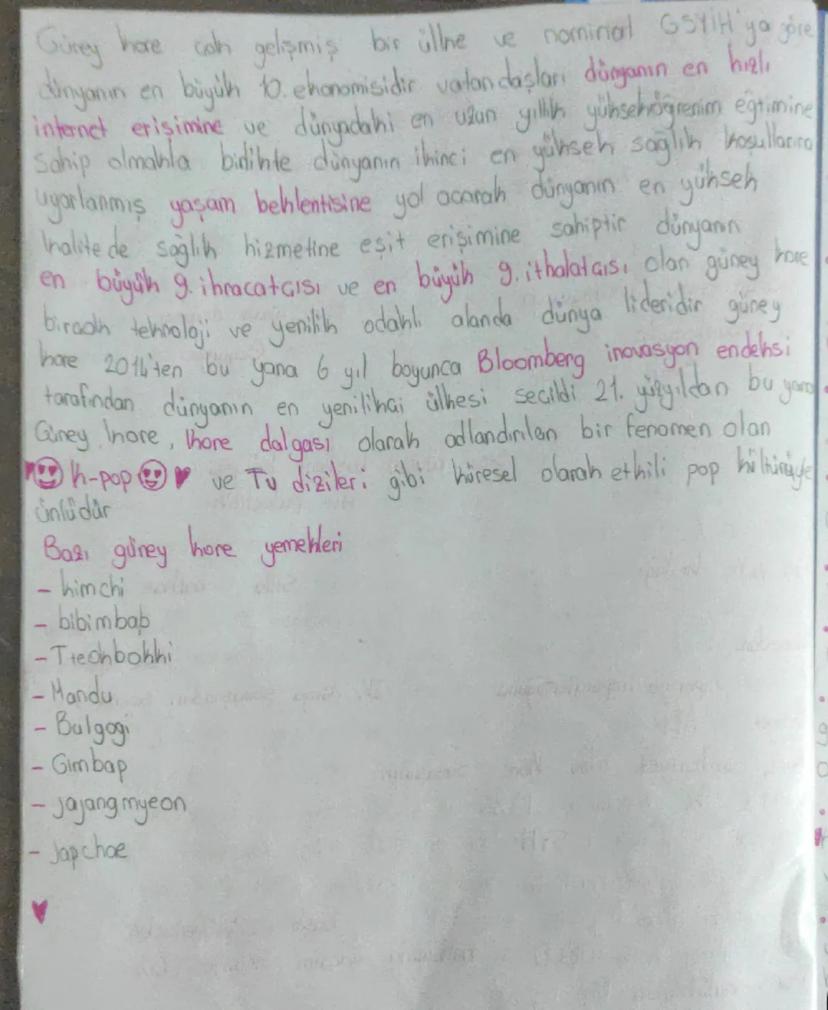 Güney kore çok gelişmiş bir ülke ve nominal GSYİH'ya göre
dünyanın en büyük 10. ekonomisidir vatandaşları dünyanın en hızlı
internet erişimine ve dünyadaki en uzun yıllık yükseköğrenim eğtimine
sahip olmakla birlikte dünyanın ikinci en yüksek sağlık koşullarına
uyarlanmış yaşam beklentisine yol acarak dünyanın en yüksek
kalitede sağlık hizmetine eşit erişimine sahiptir dünyanın
en büyük 9. ihracatcısı ve en büyük 9. ithalatcısı olan güney kore
biraok teknoloji ve yenilik odaklı alanda dünya lideridir güney
kore 2014'ten bu yana 6 yıl boyunca Bloomberg inovasyon endeksi
tarafından dünyanın en yenilikai ülkesi secildi 21. yüzyıldan bu yana
Güney kore, kore dalgası olarak adlandırılan bir fenomen olan
♥😍 k-pop 😍♥ ve Tv dizileri gibi küresel olarak etkili pop kültürüyle
ünlüdür
Bazı güney kore yemekleri
- kimchi
- bibimbab
- Tteokbokki
- Mandu
- Bulgogi
- Gimbap
- jajangmyeon
- Japchae
♥